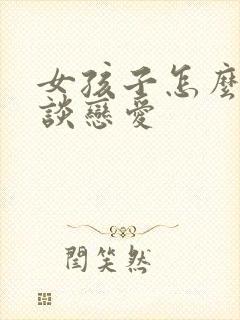 女孩子怎麼
談戀愛
閆笑然